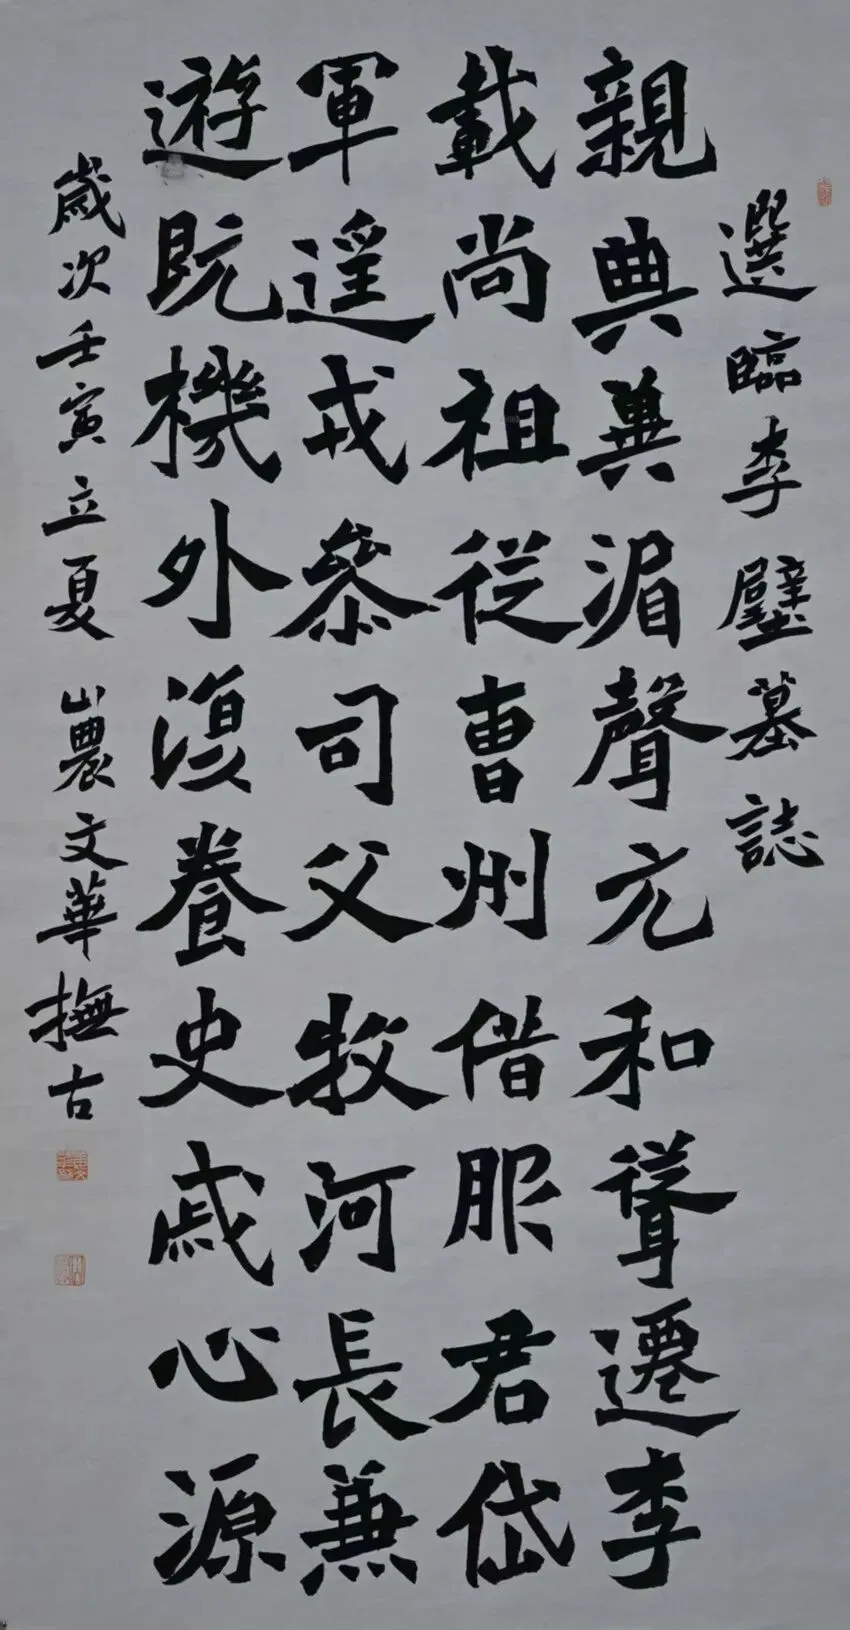 選臨李璧墓誌
親典冀湄聲亢和聳遷李
載尚祖從曹州借服君岱
軍遥戎叅司父牧河長兼
遊既機外復養史戚心源
歲次壬寅立夏 山農文華撫古